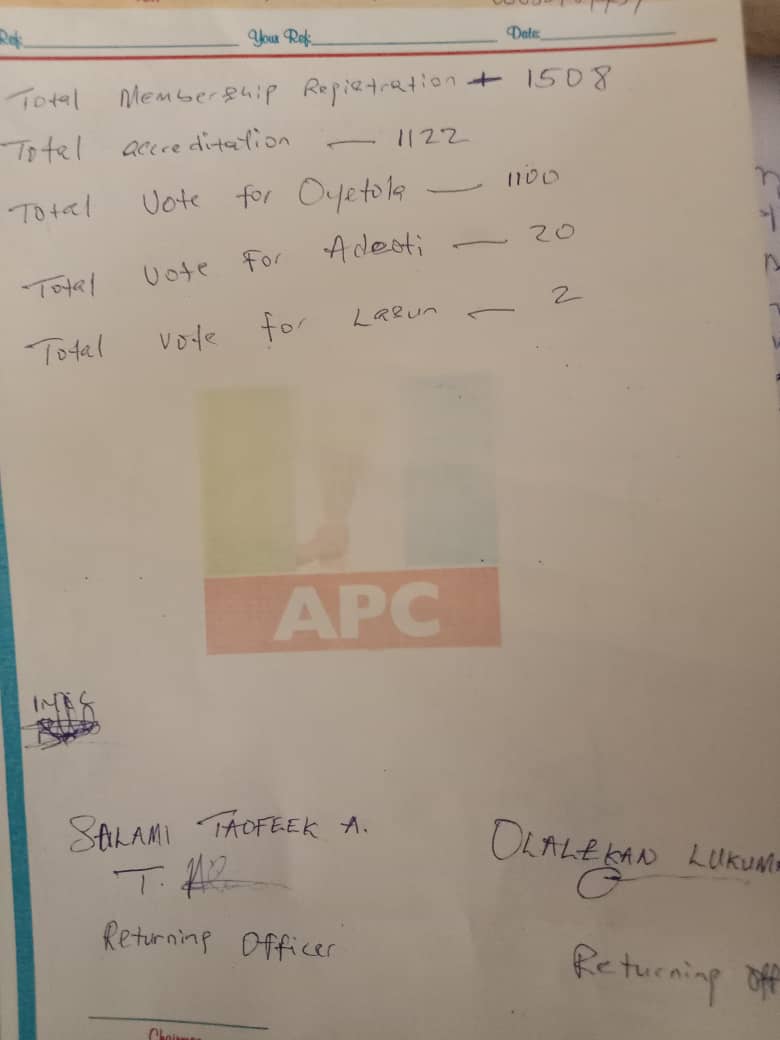 Ref: Your Ref: Date:
Total Membership Registration — 1508
Total accreditation — 1122
Total Vote for Oyetola — 1100
Total Vote For Adeoti — 20
Total vote for Lasun — 2
APC
SALAMI TAOFEEK A. OLALEKAN LUKUM
T.
Returning Officer Returning Off